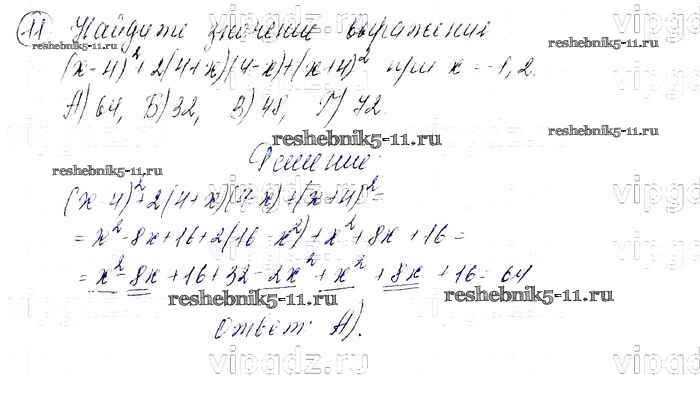 11 Найдите значение выражения
(x-4)²+2(4+x)(4-x)+(x+4)² при x=-1,2.
А) 64, Б) 32, В) 48, Г) 72.
reshebnik5-11.ru
reshebnik5-11.ru
reshebnik5-11.ru
Решение:
(x-4)²+2(4+x)(4-x)+(x+4)²=
= x²-8x+16+2(16-x²)+x²+8x+16=
= x²-8x+16+32-2x²+x²+8x+16=64
reshebnik5-11.ru
reshebnik5-11.ru
Ответ: А).
vipgdz.ru
vipgdz.ru
vipgdz.ru
vipgdz.ru
vipgdz.ru
vipgdz.ru